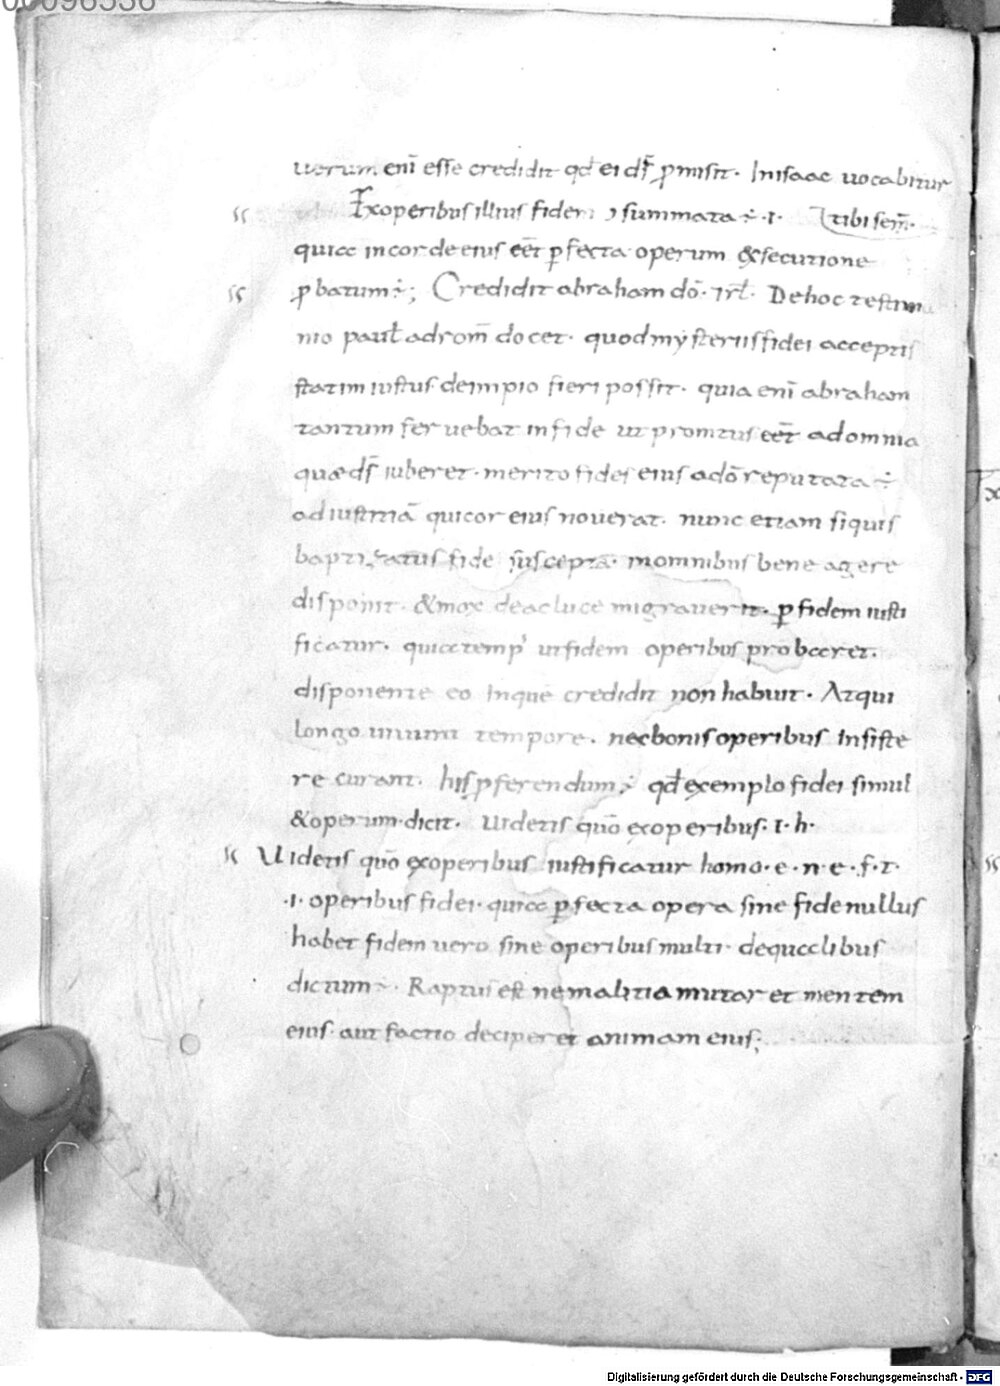 00096536
uerum eni̅ esse credidit qd̅ ei ds̅ ꝓmisit. In isaac uocabitur
Ex operibus illius fides ↄsummata ÷ .i. tibi sem̅.
quia in corde eius eet̅ ꝑfecta operum & secutione
ꝓbatum ÷; Credidit abraham dō. ⁊rl̅. De hoc testimo
nio paul̅ ad rom̅ docet. quod mysteriis fidei acceptis
statim iustus de impio fieri possit. quia eni̅ abraham
tantum feruebat in fide ut promtus eet̅ ad omnia
quæ ds̅ iuberet. merito fides eius a dō reputata ÷
ad iustitiā qui cor eius nouerat. nunc etiam siquis
baptizatus fide suscepta. in omnibus bene agere
disponit. & mox de ac luce migrauerit. ꝑ fidem iusti
ficatur. quia temp' ut fidem operibus probaret.
disponente eo in quē credidit non habuit. Atqui
longo uiuunt tempore. nec bonis operibus insiste
re curant. his ꝓferendum ÷ qd̅ exemplo fidei simul
& operum dicit. Uidetis quō ex operibus. i. h.
Uidetis quō ex operibus iustificatur homo. e. n. e. f. t.
.i. operibus fidei. quia ꝑfecta opera sine fide nullus
habet fidem uero sine operibus multi. de qualibus
dictum ÷. Raptus est ne malitia mutaret mentem
eius. aut factio deciperet animam eius;
Digitalisierung gefördert durch die Deutsche Forschungsgemeinschaft - DFG